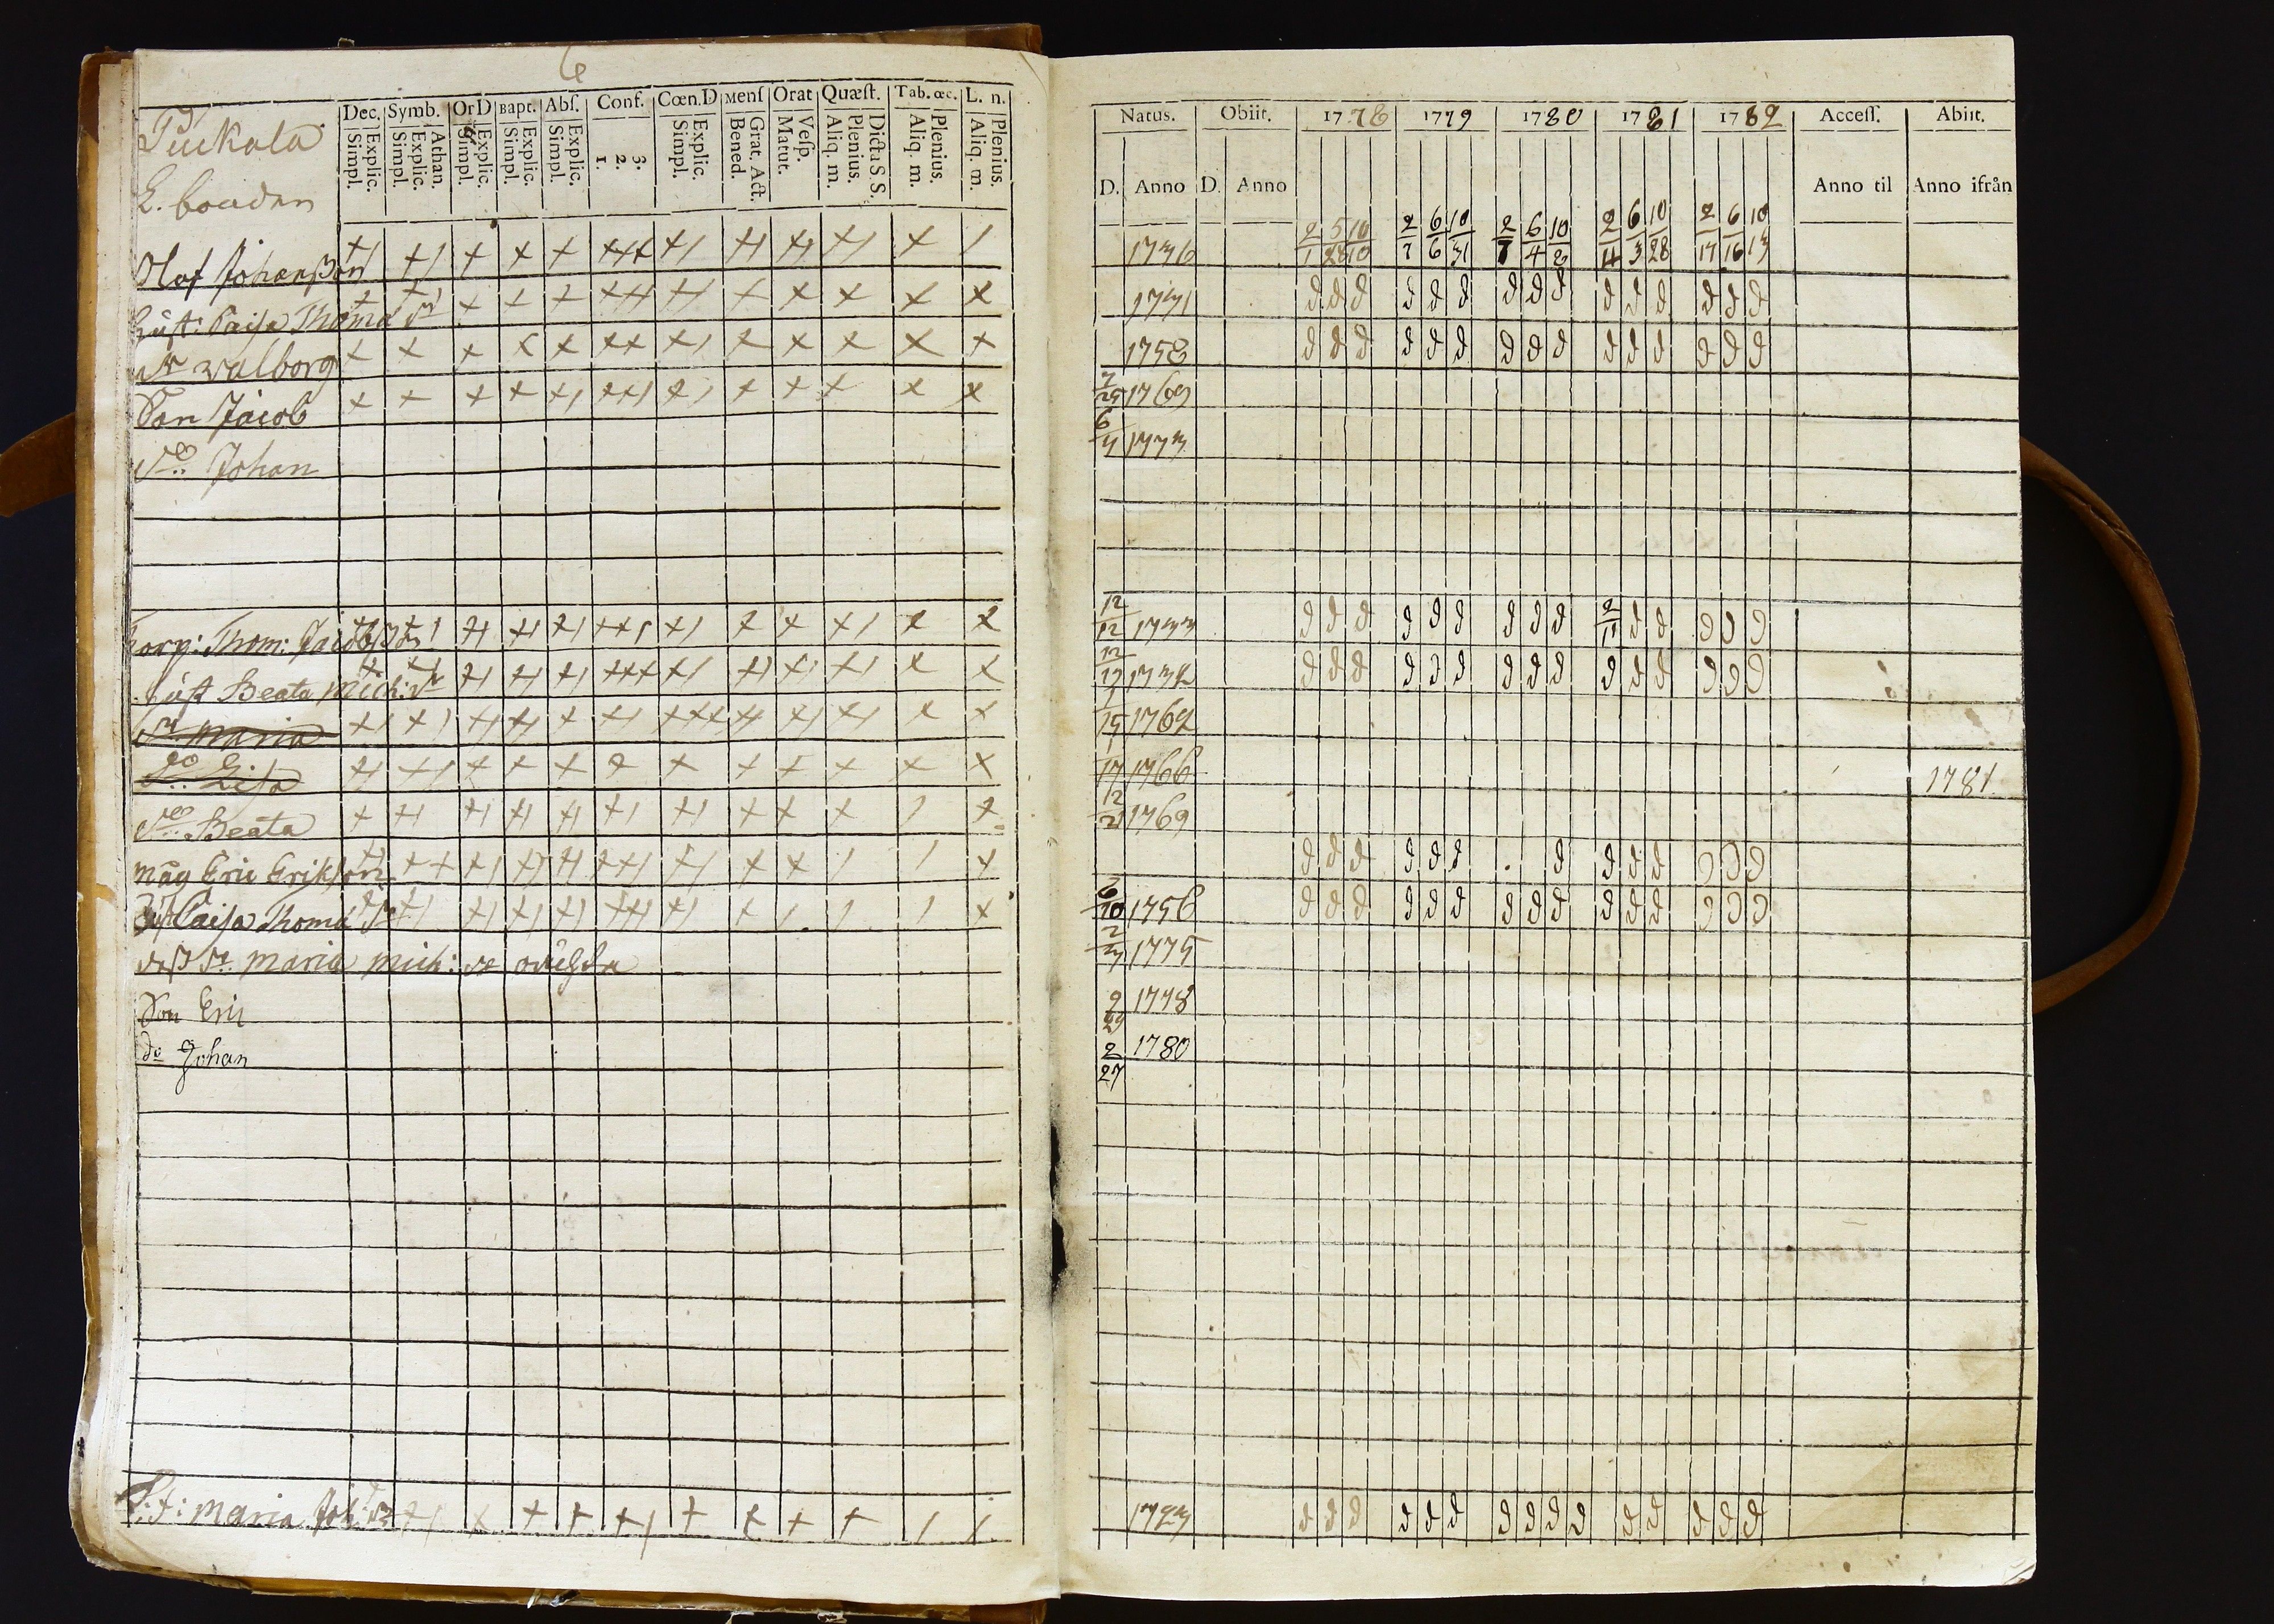 6
Dec. Symb. OrD Bapt. Abſ. Conf. Cœn.D Menſ Orat Quæſt. Tab. œc. L. n.
Explic. Simpl. Athan. Explic. Simpl. Explic. Simpl. Explic. Simpl. Explic. Simpl. 3. 2. 1. Explic. Simpl. Grat. Act. Bened. Veſp. Matut. Dicta S.S. Plenius. Aliq. m. Plenius. Aliq. m. Plenius. Aliq. m.
Natus. Obiit. 1778 1779 1780 1781 1782 Acceſſ. Abiit.
D. Anno D. Anno Anno til Anno ifrån
Puckala
L. bonden
2/1 5/28 10/10 2/7 6/6 10/31 2/7 6/4 10/8 2/11 6/3 10/28 2/17 6/16 10/13
Olof Johanßon 1736
Hust: Caisa Thomæ dr 1731 d d d d d d d d d d d d d d d
dr Walborg 1758 d d d d d d d d d d d d d d d
Son Jacob 7/25 1769
do Johan 6/7 1773
Torp: Thom: Jacobßon 12/12 1733 d d d d d d d d d 2/11 d d d d d
Hust Beata Mich: dr 1734 d d d d d d d d d d d d d d d
dr Maria 15 1762
do Lisa 17 1766 1781
do Beata 12/21 1769
Måg Eric Eriksson d d d d d d d d d d d d d
Hust Caisa Thomæ dr 6/10 1756 d d d d d d d d d d d d d d d
dr Maria Mich: dr 2/7 1775
Son Eric 9/29 1778
do Johan 2/27 1780
Maria Joh: dr 1723 d d d d d d d d d d d d d d d